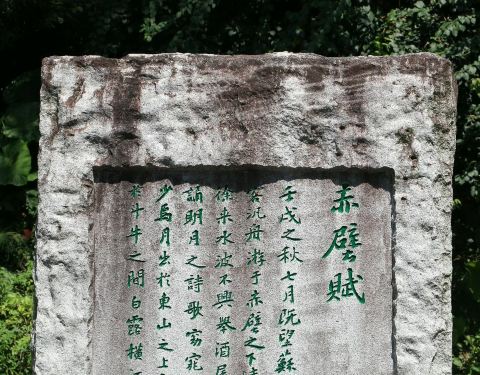 赤壁賦
壬戌之秋七月既望蘇
客汎舟游于赤壁之下
徐来水波不興舉酒屬
誦明月之詩歌窈窕
少焉月出於東山之上
於斗牛之間白露橫